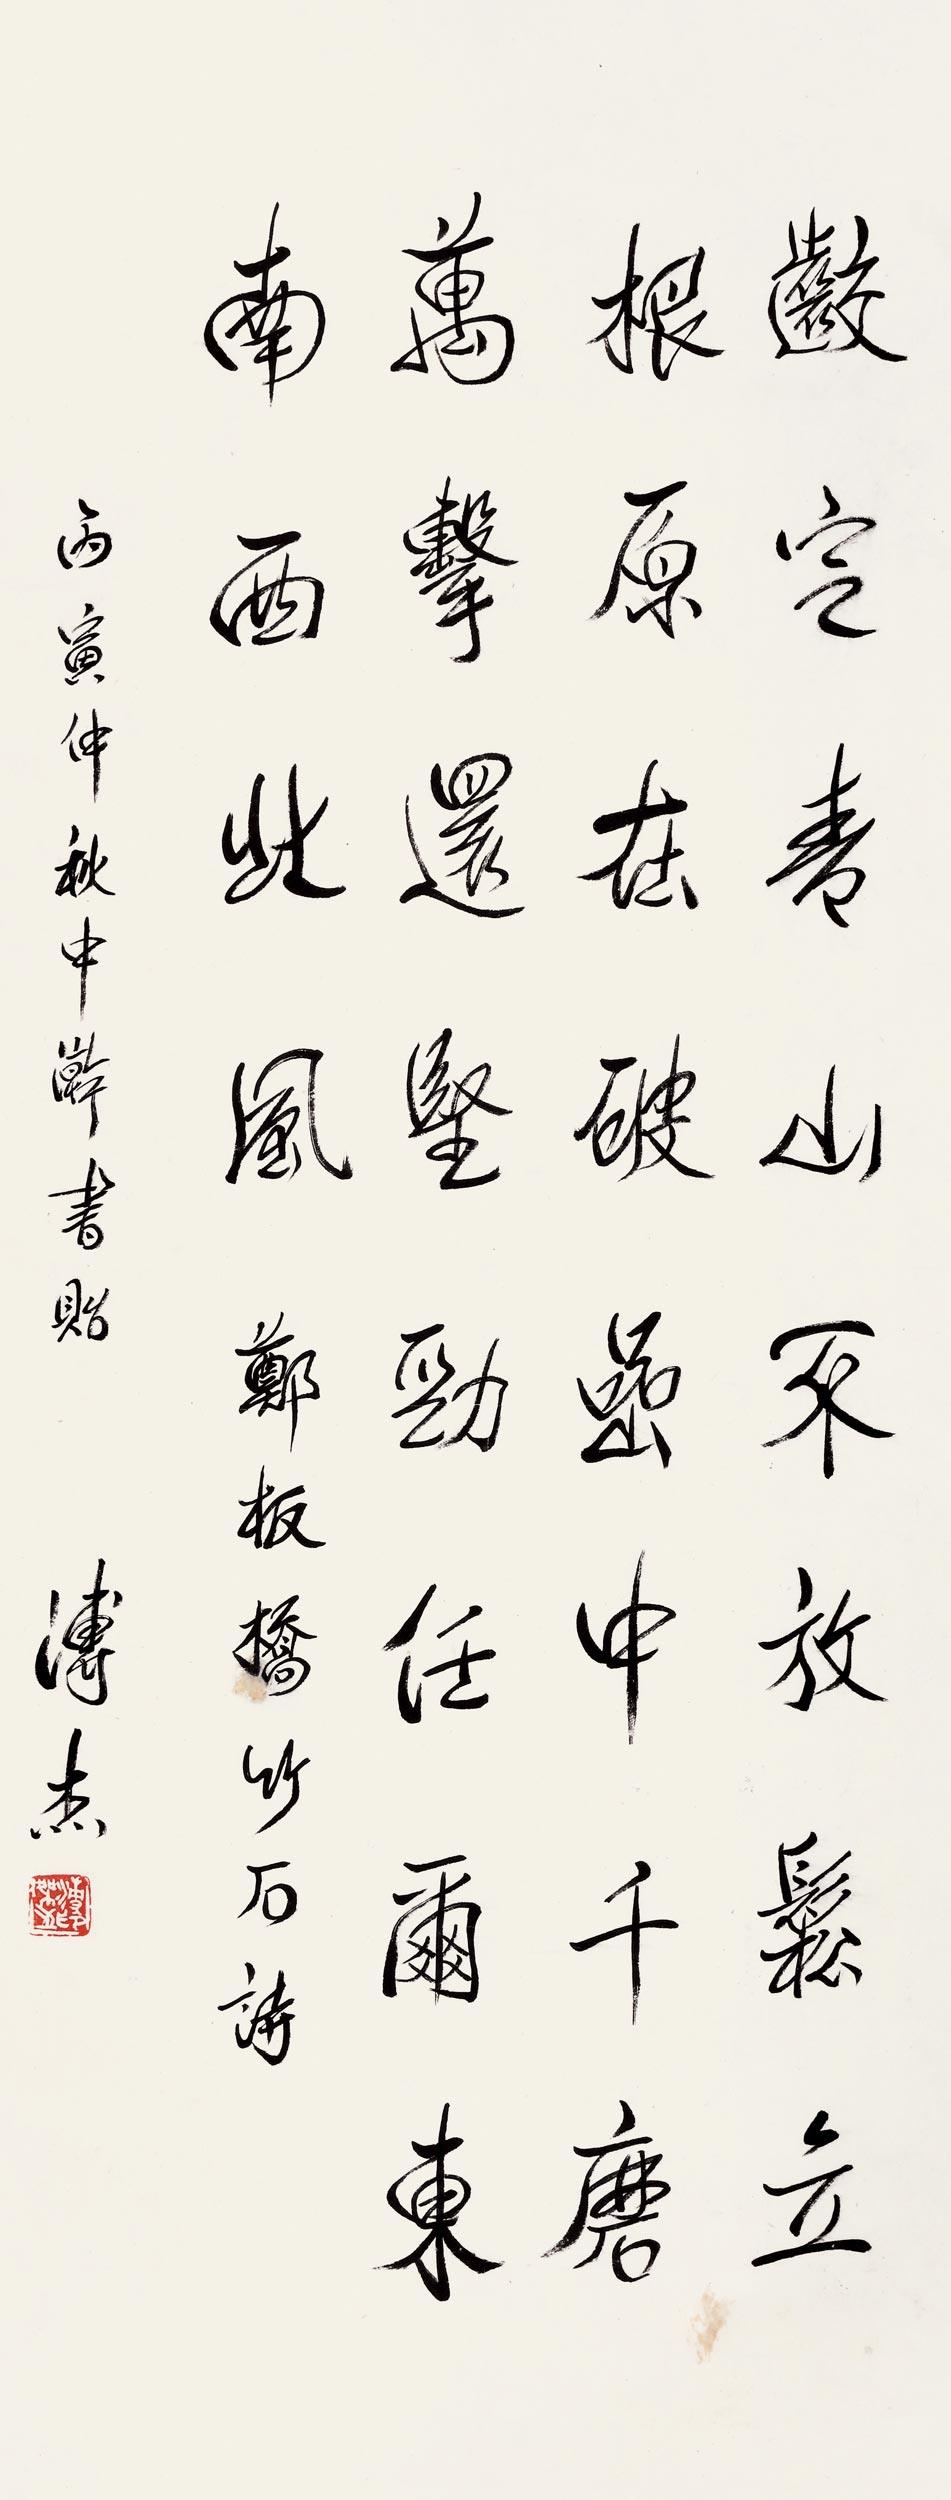 齩定青山不放鬆立
根原在破嵒中千磨
萬擊還堅勁任爾東
南西北風 鄭板橋竹石詩
丙寅仲秋中澣書貽 溥杰